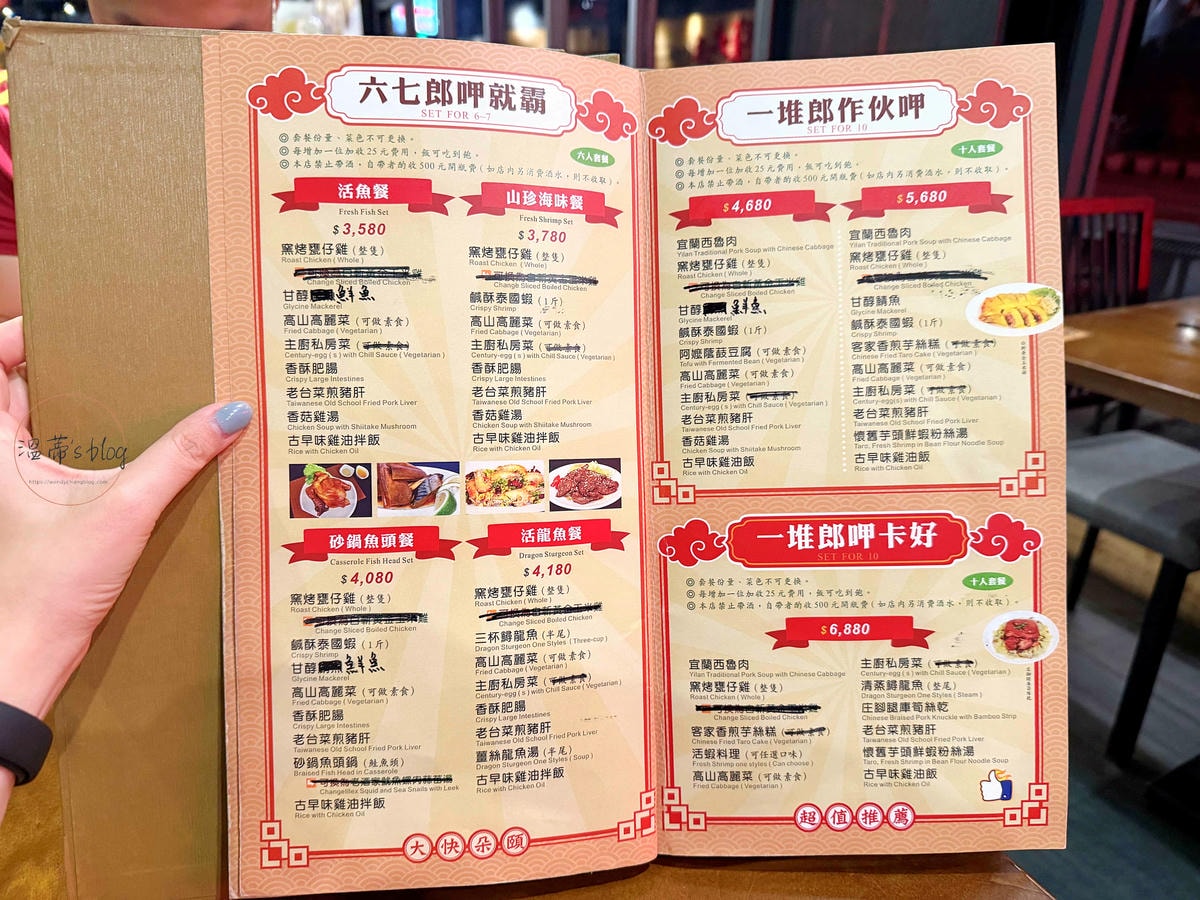 六七郎呷就霸
SET FOR 6~7
◎ 套餐份量、菜色不可更換。
◎ 每增加一位加收25元費用,飯可吃到飽。
◎ 本店禁止帶酒,自帶者酌收500元開瓶費(如店內另消費酒水,則不收取)。
六人套餐
活魚餐
Fresh Fish Set
$3,580
窯烤甕仔雞(整隻)
Roast Chicken ( Whole )
Change Sliced Boiled Chicken
甘醇 鮮魚
Glycine Mackerel
高山高麗菜(可做素食)
Fried Cabbage ( Vegetarian )
主廚私房菜(可做素食)
Century-egg ( s ) with Chill Sauce ( Vegetarian )
香酥肥腸
Crispy Large Intestines
老台菜煎豬肝
Taiwanese Old School Fried Pork Liver
香菇雞湯
Chicken Soup with Shiitake Mushroom
古早味雞油拌飯
Rice with Chicken Oil
山珍海味餐
Fresh Shrimp Set
$3,780
窯烤甕仔雞(整隻)
Roast Chicken ( Whole )
Change Sliced Boiled Chicken
鹹酥泰國蝦(1斤)
Crispy Shrimp
高山高麗菜(可做素食)
Fried Cabbage ( Vegetarian )
主廚私房菜(可做素食)
Century-egg ( s ) with Chill Sauce ( Vegetarian )
香酥肥腸
Crispy Large Intestines
老台菜煎豬肝
Taiwanese Old School Fried Pork Liver
香菇雞湯
Chicken Soup with Shiitake Mushroom
古早味雞油拌飯
Rice with Chicken Oil
砂鍋魚頭餐
Casserole Fish Head Set
$4,080
窯烤甕仔雞(整隻)
Roast Chicken ( Whole )
Change Sliced Boiled Chicken
鹹酥泰國蝦(1斤)
Crispy Shrimp
甘醇 鮮魚
Glycine Mackerel
高山高麗菜(可做素食)
Fried Cabbage ( Vegetarian )
香酥肥腸
Crispy Large Intestines
老台菜煎豬肝
Taiwanese Old School Fried Pork Liver
砂鍋魚頭鍋(鮭魚頭)
Braised Fish Head in Casserole
可換為老酒家魷魚螺肉蒜菇湯
Squid and Sea Snails with Leek
古早味雞油拌飯
Rice with Chicken Oil
活龍魚餐
Dragon Sturgeon Set
$4,180
窯烤甕仔雞(整隻)
Roast Chicken ( Whole )
Change Sliced Boiled Chicken
三杯鱘龍魚(半尾)
Dragon Sturgeon One Styles ( Three-cup )
高山高麗菜(可做素食)
Fried Cabbage ( Vegetarian )
主廚私房菜(可做素食)
Century-egg ( s ) with Chill Sauce ( Vegetarian )
香酥肥腸
Crispy Large Intestines
老台菜煎豬肝
Taiwanese Old School Fried Pork Liver
薑絲龍魚湯(半尾)
Dragon Sturgeon One Styles ( Soup )
古早味雞油拌飯
Rice with Chicken Oil
大快朵頤
一堆郎作伙呷
SET FOR 10
十人套餐
◎ 套餐份量、菜色不可更換。
◎ 每增加一位加收25元費用,飯可吃到飽。
◎ 本店禁止帶酒,自帶者酌收500元開瓶費(如店內另消費酒水,則不收取)。
$4,680
宜蘭西魯肉
Yilan Traditional Pork Soup with Chinese Cabbage
窯烤甕仔雞(整隻)
Roast Chicken ( Whole )
Change Sliced Boiled Chicken
甘醇 鮮魚
Glycine Mackerel
鹹酥泰國蝦(1斤)
Crispy Shrimp
阿嬤蔭豉豆腐(可做素食)
Tofu with Fermented Bean ( Vegetarian )
高山高麗菜(可做素食)
Fried Cabbage ( Vegetarian )
主廚私房菜(可做素食)
Century-egg ( s ) with Chill Sauce ( Vegetarian )
老台菜煎豬肝
Taiwanese Old School Fried Pork Liver
香菇雞湯
Chicken Soup with Shiitake Mushroom
古早味雞油飯
Rice with Chicken Oil
$5,680
宜蘭西魯肉
Yilan Traditional Pork Soup with Chinese Cabbage
窯烤甕仔雞(整隻)
Roast Chicken ( Whole )
Change Sliced Boiled Chicken
甘醇鯖魚
Glycine Mackerel
鹹酥泰國蝦(1斤)
Crispy Shrimp
客家香煎芋絲糕(可做素食)
Chinese Fried Taro Cake ( Vegetarian )
高山高麗菜(可做素食)
Fried Cabbage ( Vegetarian )
主廚私房菜(可做素食)
Century-egg(s) with Chill Sauce ( Vegetarian )
老台菜煎豬肝
Taiwanese Old School Fried Pork Liver
懷舊芋頭鮮蝦粉絲湯
Taro, Fresh Shrimp in Bean Flour Noodle Soup
古早味雞油飯
Rice with Chicken Oil
一堆郎呷卡好
SET FOR 10
十人套餐
◎ 套餐份量、菜色不可更換。
◎ 每增加一位加收25元費用,飯可吃到飽。
◎ 本店禁止帶酒,自帶者酌收500元開瓶費(如店內另消費酒水,則不收取)。
$6,880
宜蘭西魯肉
Yilan Traditional Pork Soup with Chinese Cabbage
窯烤甕仔雞(整隻)
Roast Chicken ( Whole )
Change Sliced Boiled Chicken
客家香煎芋絲糕(可做素食)
Chinese Fried Taro Cake ( Vegetarian )
活蝦料理(可任選口味)
Fresh Shrimp one styles ( Can choose )
高山高麗菜(可做素食)
Fried Cabbage ( Vegetarian )
主廚私房菜(可做素食)
Century-egg ( s ) with Chill Sauce ( Vegetarian )
清蒸鱘龍魚(整尾)
Dragon Sturgeon One Styles ( Steam )
庄腳腿庫筍絲乾
Chinese Braised Pork Knuckle with Bamboo Strip
老台菜煎豬肝
Taiwanese Old School Fried Pork Liver
懷舊芋頭鮮蝦粉絲湯
Taro, Fresh Shrimp in Bean Flour Noodle Soup
古早味雞油飯
Rice with Chicken Oil
超值推薦
溫蒂's blog
https://wendychangblog.com